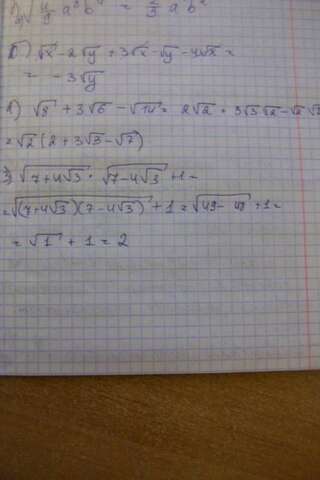 √(4/9 a⁶b⁴) = 2/3 a³b²
б) √x - 2√y + 3√x - √y - 4√x =
= -3√y
2) √8 + 3√6 - √14 = 2√2 + 3√3√2 - √2 √7
= √2 (2 + 3√3 - √7)
3) √(7+4√3) · √(7-4√3) + 1 =
= √((7+4√3)(7-4√3)) + 1 = √(49-48) + 1 =
= √1 + 1 = 2